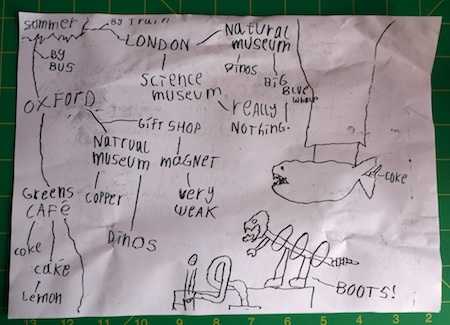 summer
BY TraiN
LONDON
Natural
museum
DiNOS
BiG
BLUE
Whale
SCiENCE
museum
rEaLLy
NOTHiNG.
BY
BUS
OXFORD
Gift SHOP
maGNET
very
WEAK
Natrual
museum
COPPER
DiNOS
Greens
CAFÉ
coke
cake
Lemon
COKE
BOOTS!